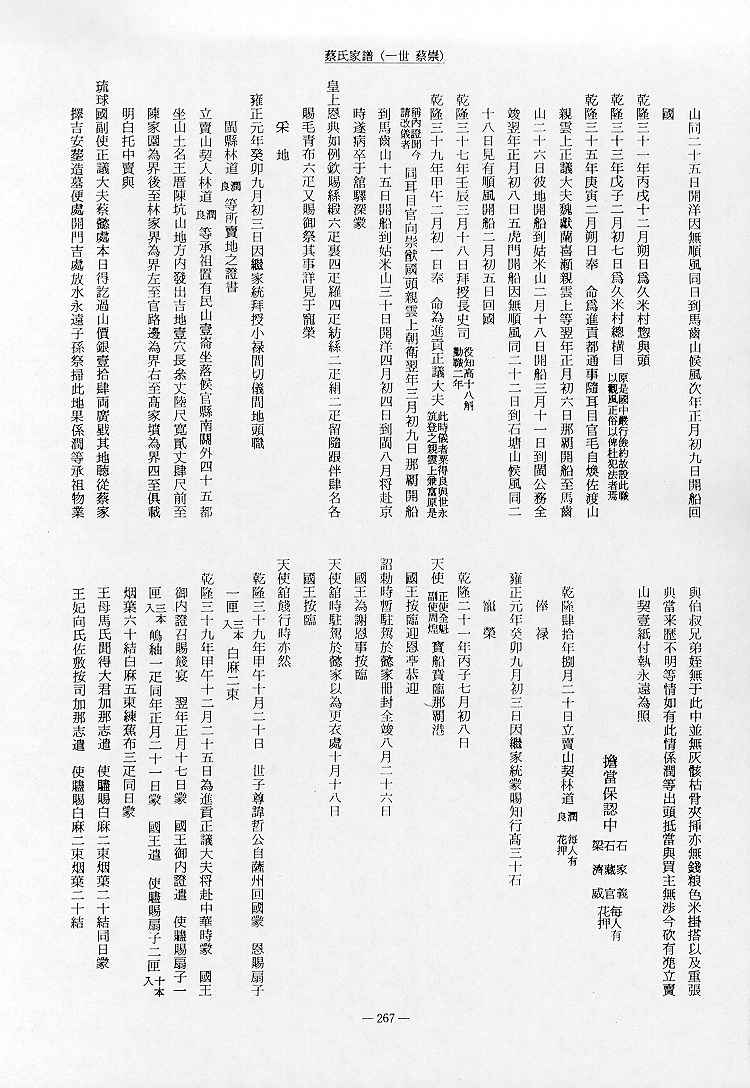 蔡氏家譜(一世 蔡崇)
山同二十五日開洋因無順風同日到馬齒山候風次年正月初九日開船回
國
乾隆三十一年丙戌十二月朔日爲久米村惣與頭
乾隆三十三年戊子二月初七日爲久米村總橫目 原是國中嚴行儉約故設此職以觀風正俗以俾杜犯法者焉
乾隆三十五年庚寅二月朔日奉 命爲進貢都通事隨耳目官毛自煥佐渡山
親雲上正議大夫魏獻蘭喜瀬親雲上等翌年正月初六日那覇開船至馬齒
山二十六日彼地開船到姑米山二月十八日開船三月十一日到閩公務全
竣翌年正月初八日五虎門開船因無順風同二十二日到石塘山候風同二
十八日見有順風開船二月初五日回國
乾隆三十七年壬辰三月十八日拜授長史司 役知高十八斛勤職二年
乾隆三十九年甲午二月初一日奉 命為進貢正議大夫 此時儀者累得良與世永筑登之親雲上兼富原是
稱內證聞今請改儀者 同耳目官向崇猷國頭親雲上朝衛翌年三月初九日那覇開船
到馬齒山十五日開船到姑米山三十日開洋四月初四日到閩八月将赴京
時遂病卒于舘驛深蒙
皇上恩典如例欽賜綵緞六疋裏四疋羅四疋紡絲二疋絹二疋留隨跟伴肆名各
賜毛青布六疋又賜御祭其事詳見于寵榮
采地
雍正元年癸卯九月初三日因繼家統拜授小禄間切儀間地頭職
閩縣林道 潤良 等所賣地之證書
立賣山契人林道 潤良 等承祖置有民山壹崙坐落候官縣南關外四十五都
坐山土名王厝陳坑山地方內發出吉地壹穴長叅丈陸尺寬貳丈肆尺前至
陳家園為界後至林家界為界左至官路邊為界右至高家墳為界四至俱載
明白托中賣與
琉球國副使正議大夫蔡懿處本日得訖過山價銀壹拾肆両廣戥其地聽從蔡家
擇吉安塟造墓便處開門吉處放水永遠子孫祭掃此地果係潤等承祖物業
與伯叔兄弟姪無于此中並無灰骸枯骨夾揷亦無錢糧色米掛搭以及重張
典當来歴不明等情如有此情係潤等出頭抵當與買主無渉今砍有凴立賣
山契壹紙付執永遠為照
擔當保認中 石家義 石藏官 梁濟威 每人有花押
乾隆肆拾年捌月二十日立賣山契林道 潤良 每人有花押
俸禄
雍正元年癸卯九月初三日因繼家統蒙賜知行髙三十石
寵榮
乾隆二十一年丙子七月初八日
天使 正使全魁副使周煌 寶船賁臨那覇港
國王按臨迎恩亭恭迎
詔勅時暫駐駕於懿家冊封全竣八月二十六日
國王為謝恩事按臨
天使舘時駐駕於懿家以為更衣處十月十八日
國王按臨
天使舘餞行時亦然
乾隆三十九年甲午十月二十日 世子尊諱哲公自薩州回國蒙 恩賜扇子
一匣 三本入 白麻二束
乾隆三十九年甲午十二月二十五日為進貢正議大夫将赴中華時蒙 國王
御內證召賜餞宴 翌年正月十七日蒙 國王御内證遣 使驢賜扇子一
匣 三本入 嶋紬一疋同年正月二十一日蒙 國王遣 使驢賜扇子二匣 十本入
烟葉六十結白麻五束練蕉布三疋同日蒙
王母馬氏聞得大君加那志遣 使驢賜白麻二束烟葉二十結同日蒙
王妃向氏佐敷按司加那志遣 使驢賜白麻二束烟葉二十結
— 267 —